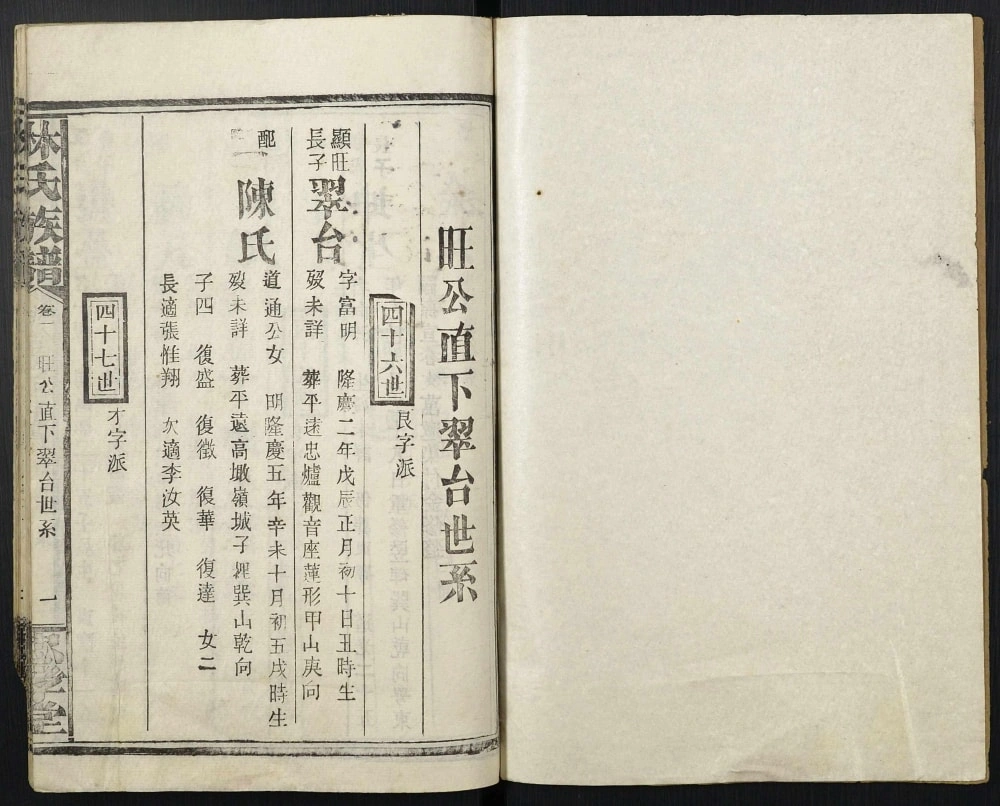 旺公直下翠台世系
四十六世
良字派
顯旺
長子
翠台
字富明 隆慶二年戊辰正月初十日丑時生
歿未詳 葬平遠忠爐觀音座蓮形甲山庚向
配
陳氏
道通公女 明隆慶五年辛未十月初五戌時生
歿未詳 葬平遠高墩嶺城子裡巽山乾向
子四 復盛 復徵 復華 復達 女二
長適張惟翔 次適李汝英
四十七世
才字派
林氏族譜
卷一 旺公直下翠台世系 一
堂